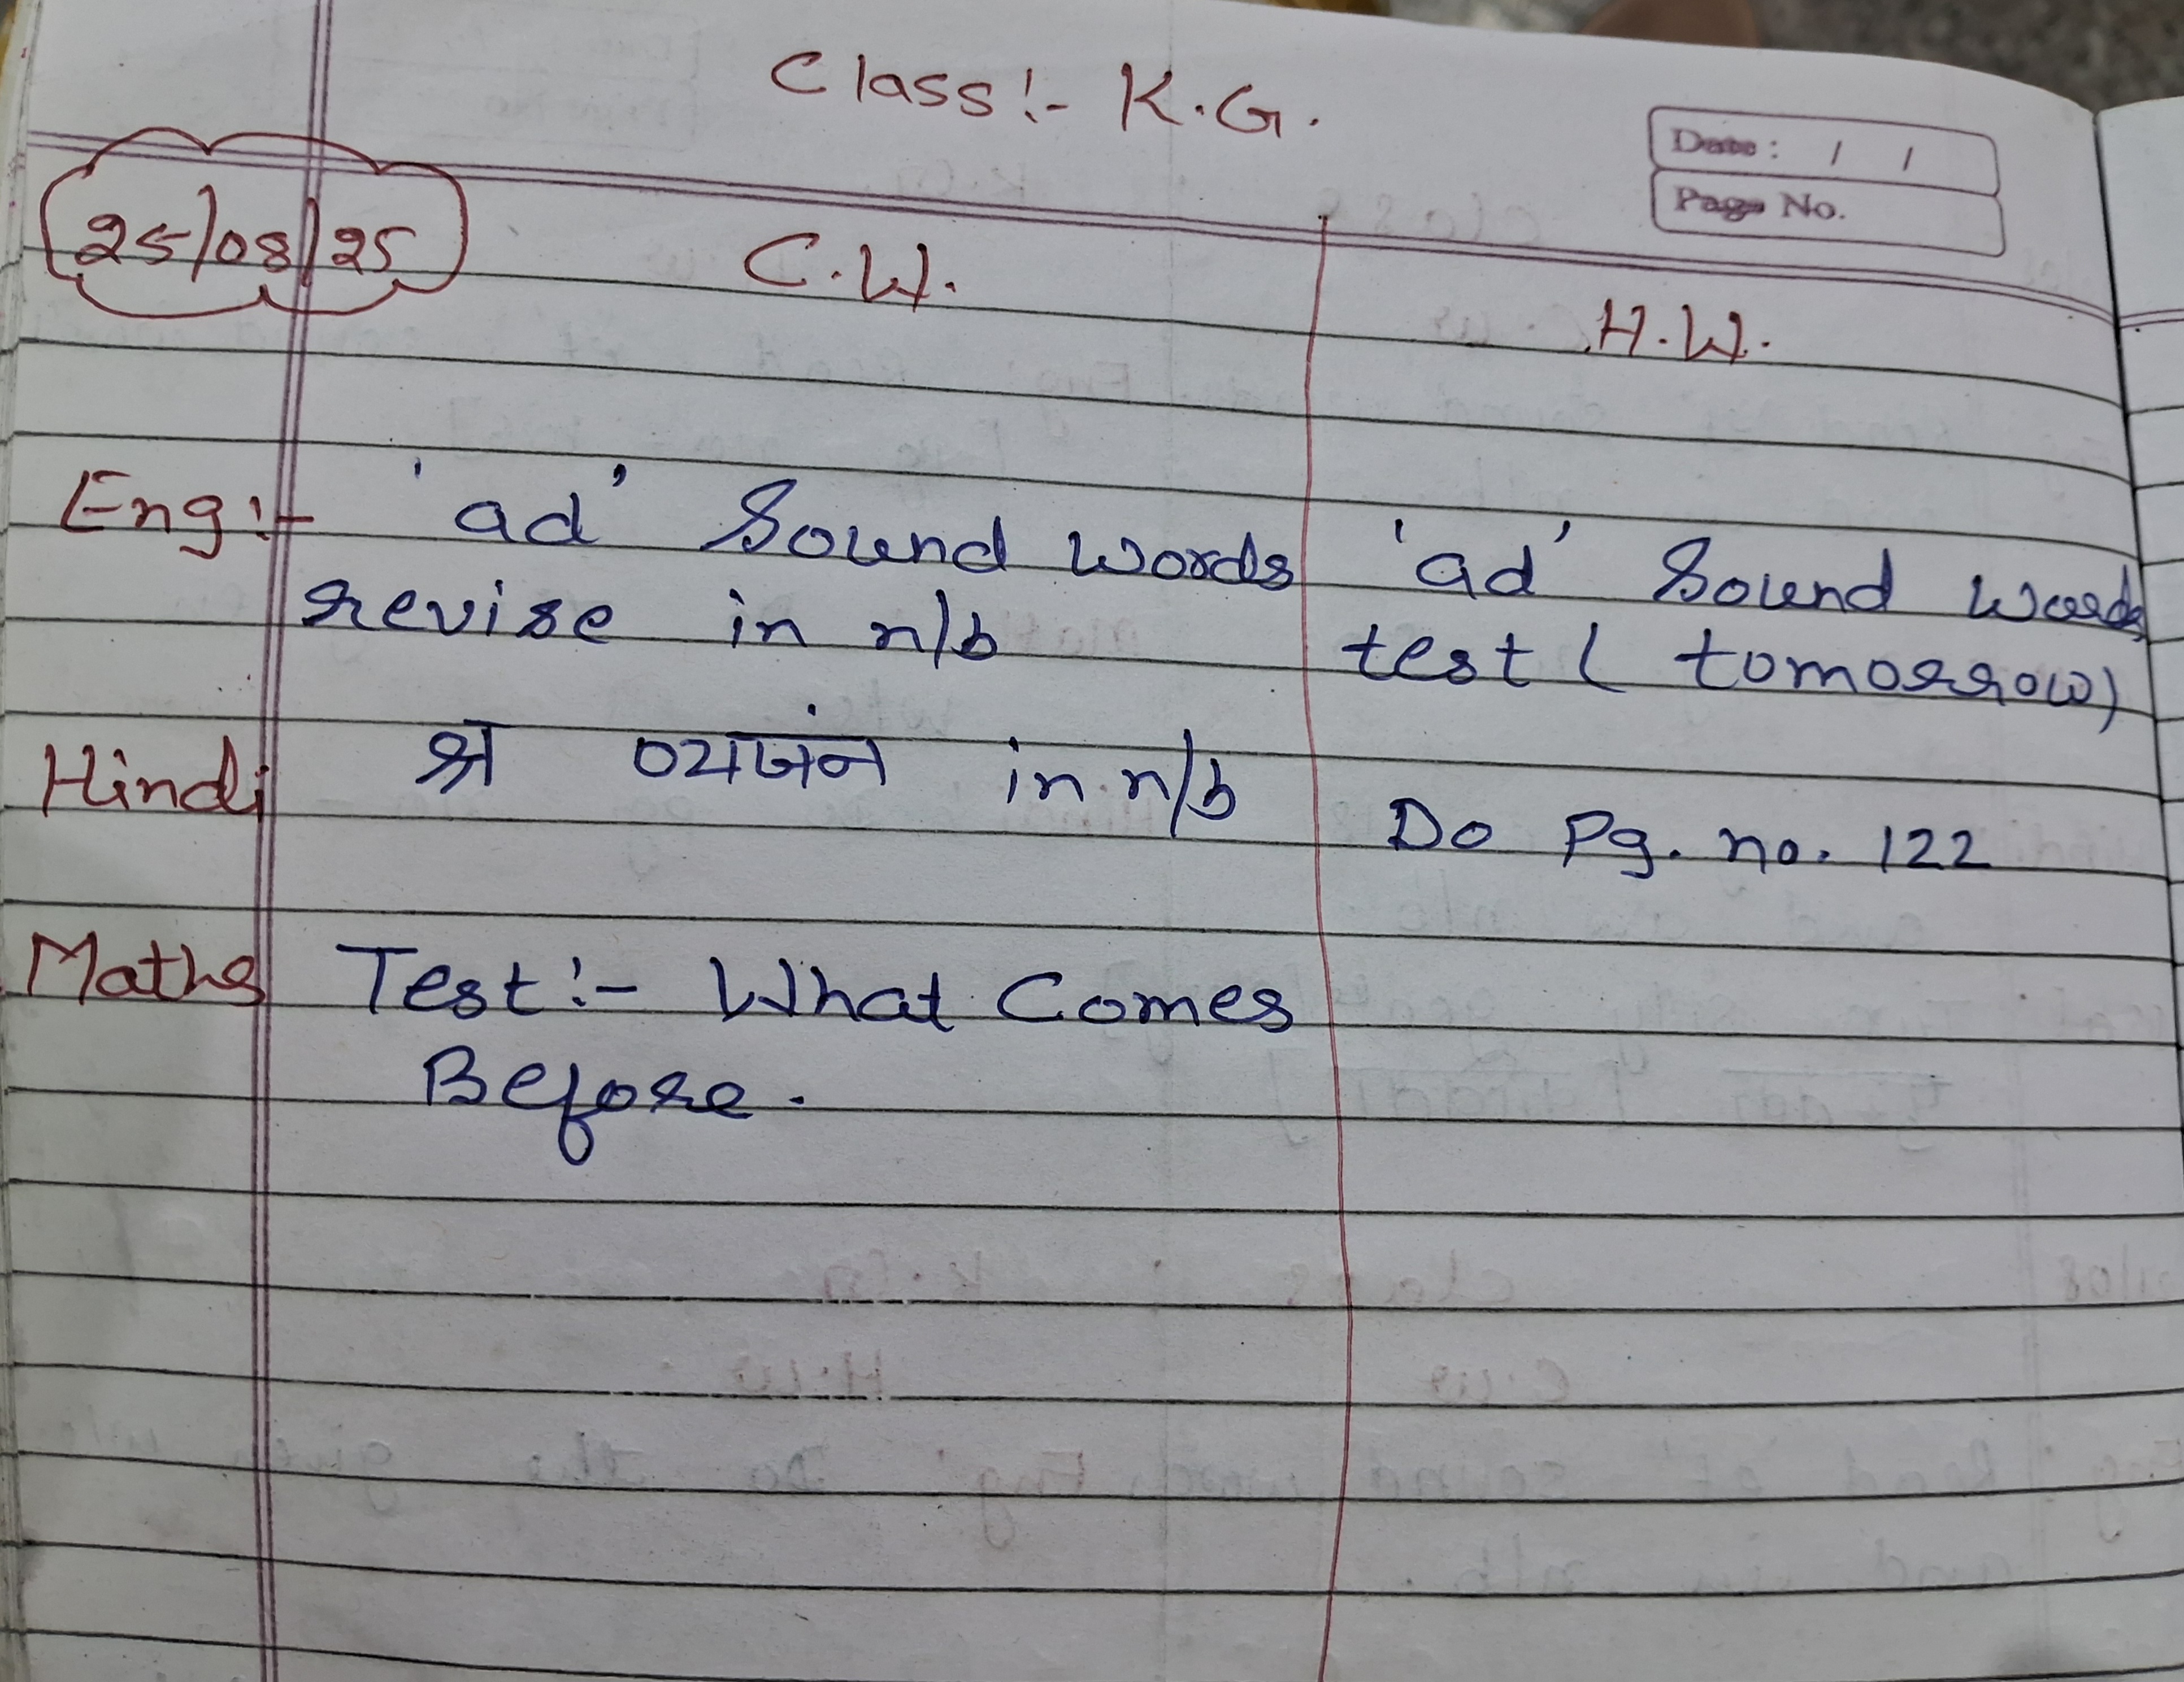 Class:- K.G.
Date: / /
Page No.
25/08/25 C.W. H.W.
Eng:- 'ad' Sound words 'ad' Sound words
revise in n/b test ( tomorrow)
Hindi श्र व्यजंन in n/b Do Pg. no. 122
Maths Test:- What Comes
Before.